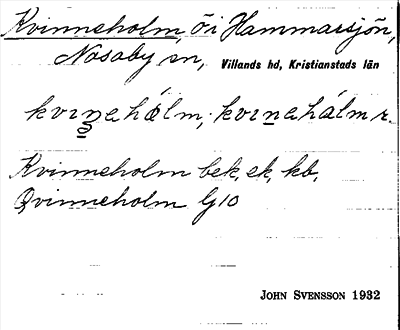 Kvinneholm, ö i Hammarsjön,
Nosaby sn, Villands hd, Kristianstads län
kvinehólm; kvinehálm r.
Kvinneholm bek, ek, kb,
Qvinneholm G10
JOHN SVENSSON 1932